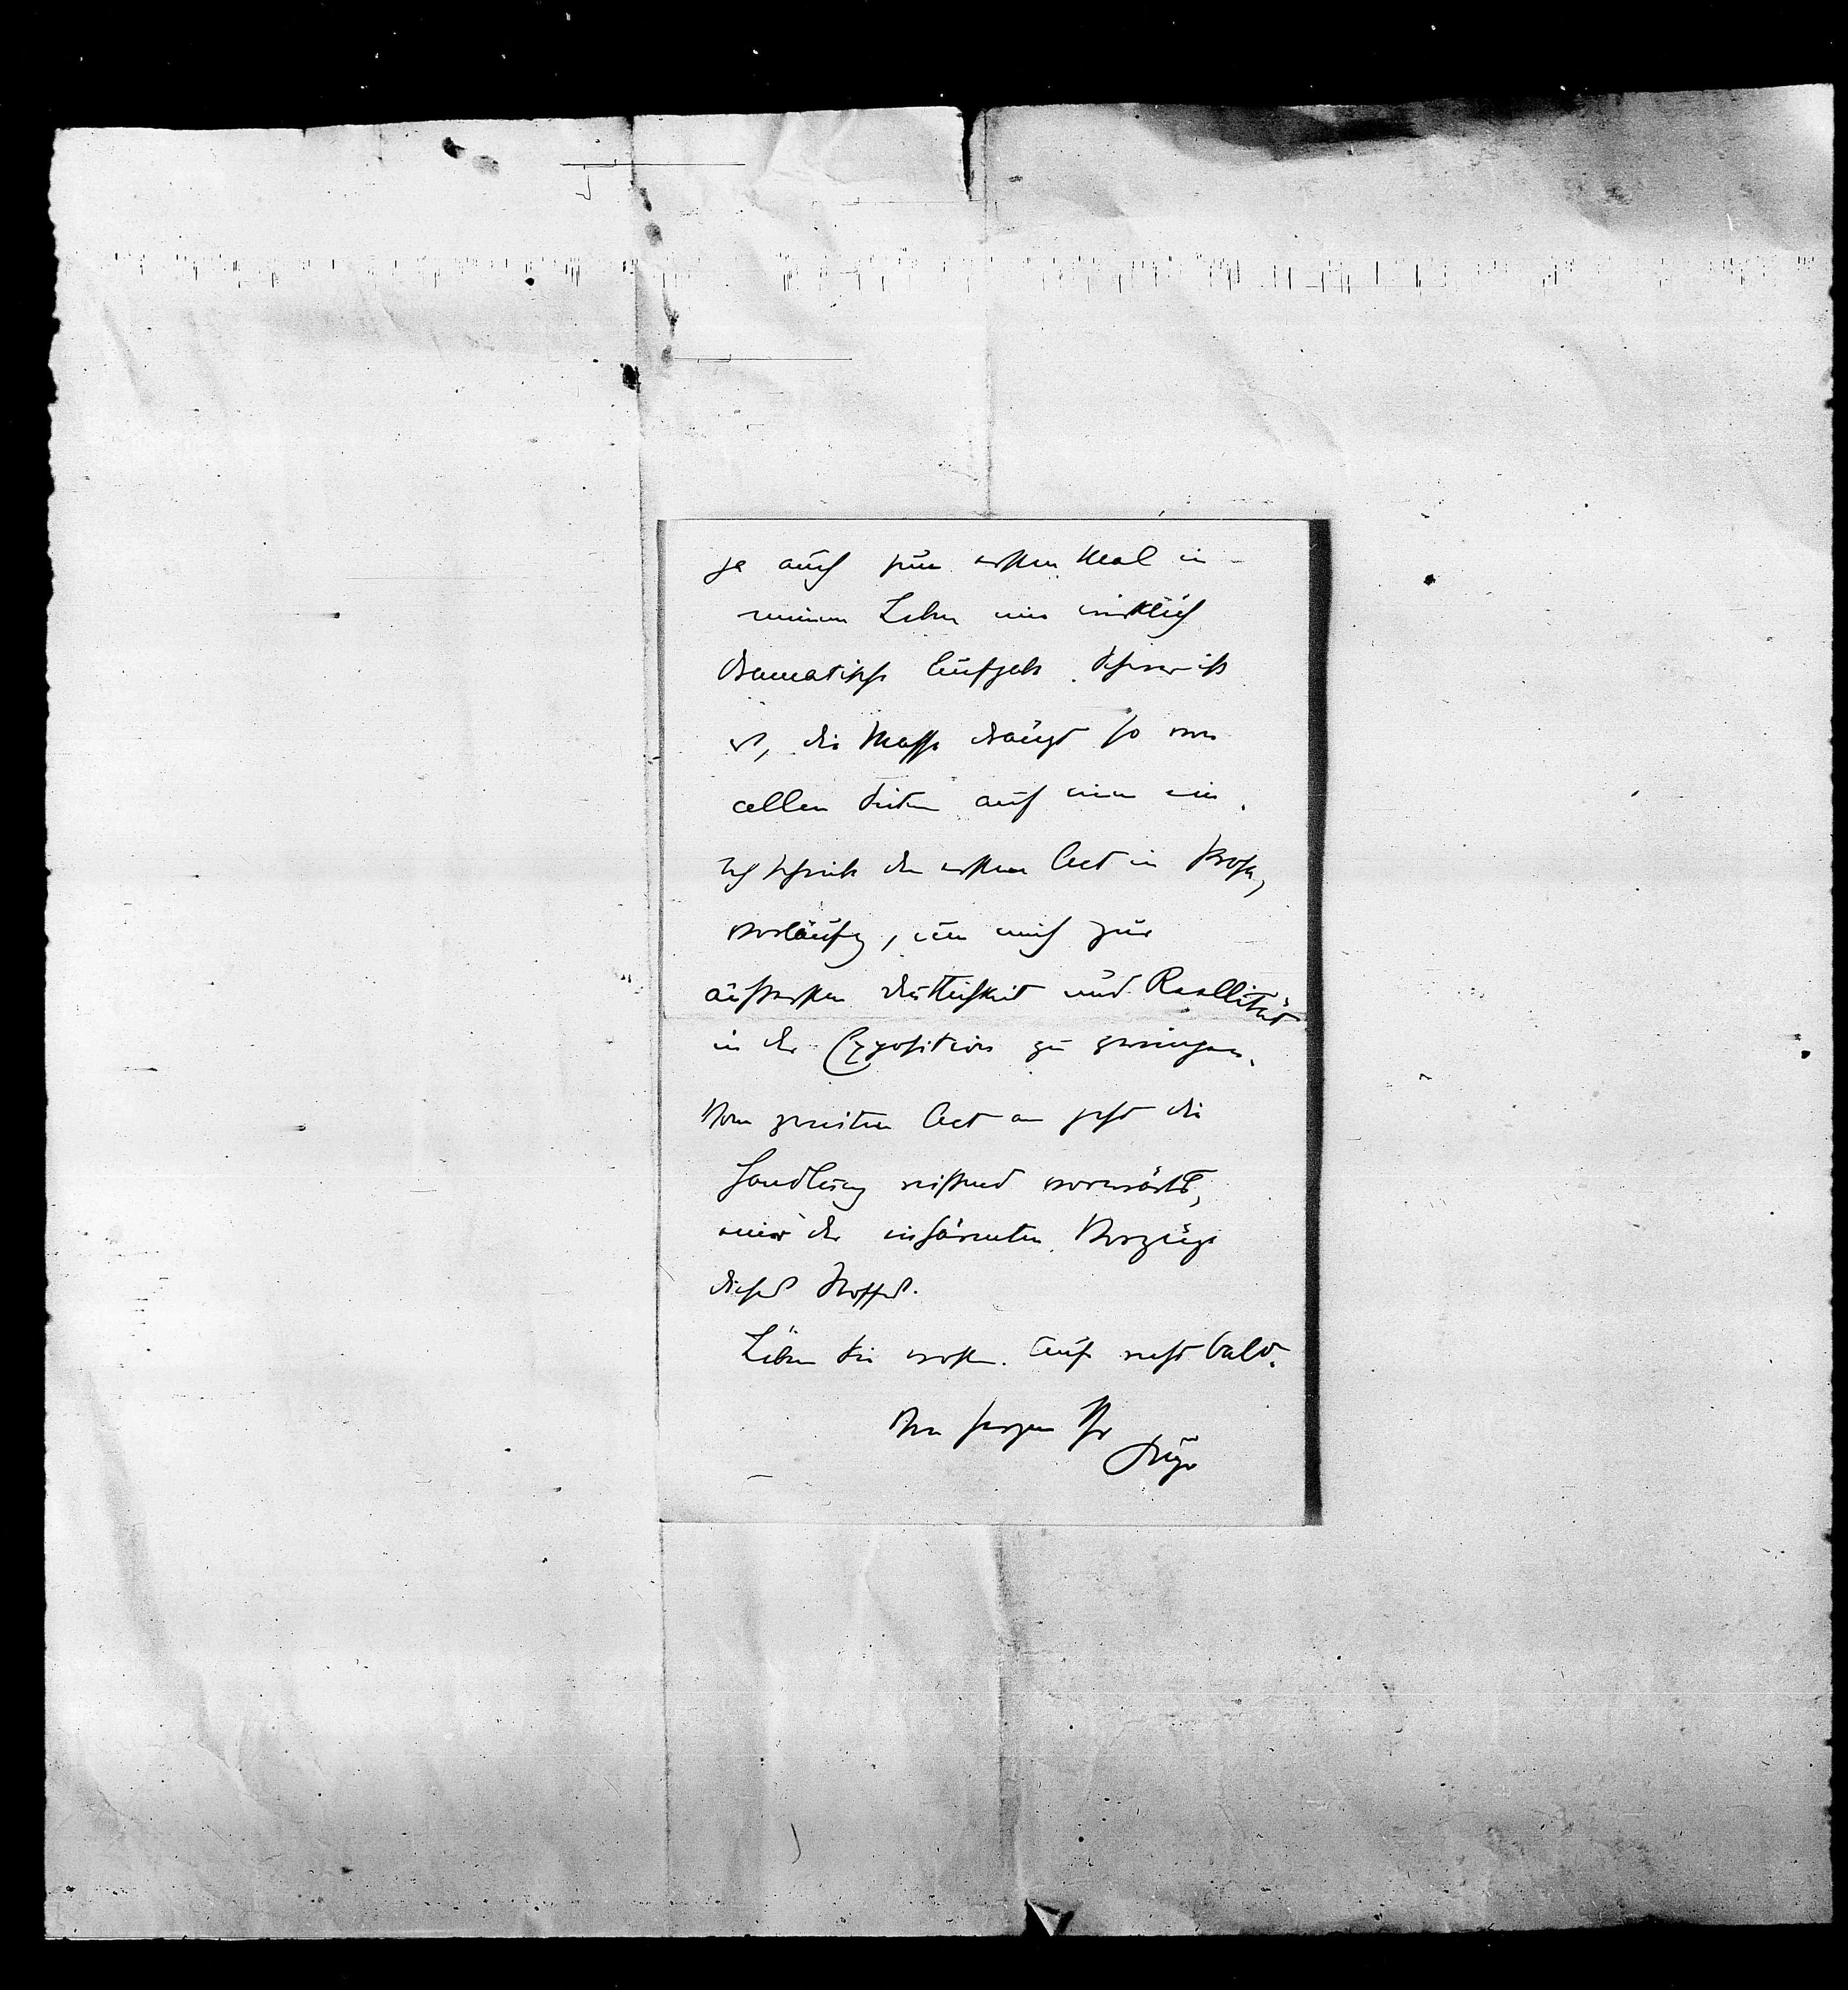 ja auch zum ersten Mal in
meinem Leben eine wirklich
dramatische Aufgabe. Schwer ist
es, die Masse drängt so von
allen Seiten auf einen ein.
Ich schrieb den ersten Act in Prosa,
vorläufig, um mich zur
äussersten Deutlichkeit und Reallität
in der Exposition zu zwingen.
Vom zweiten Act an geht die
Handlung reissend vorwärts,
einer der inhärenten Vorzüge
dieses Stoffes.
Leben Sie wohl. Auf recht bald.
Von Herzen Ihr
Hugo